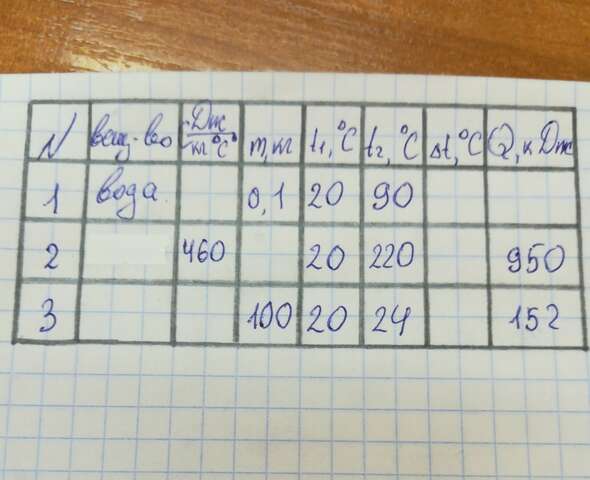 N вещ-во Дж/кг°С m, кг t₁, °С t₂, °С Δt, °С Q, к Дж
1 вода 0,1 20 90
2 460 20 220 950
3 100 20 24 152